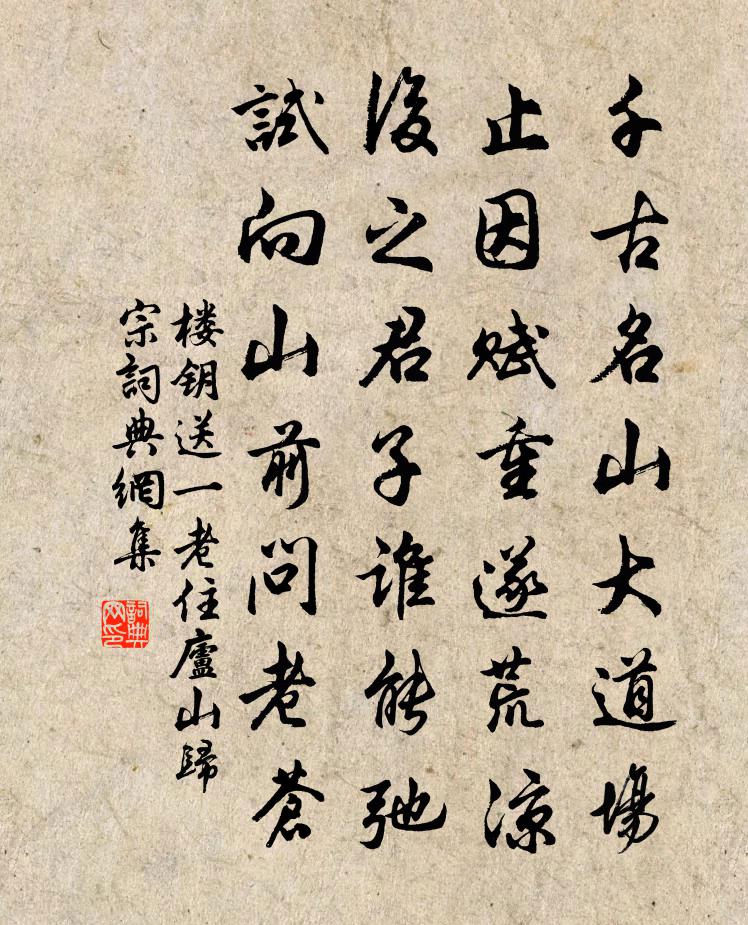 千古名山大道場
止因賦重遂荒涼
後之君子誰能弛
試向山前問老蒼
楼钥送一老住廬山歸
宗詞典網集
詞典
网印